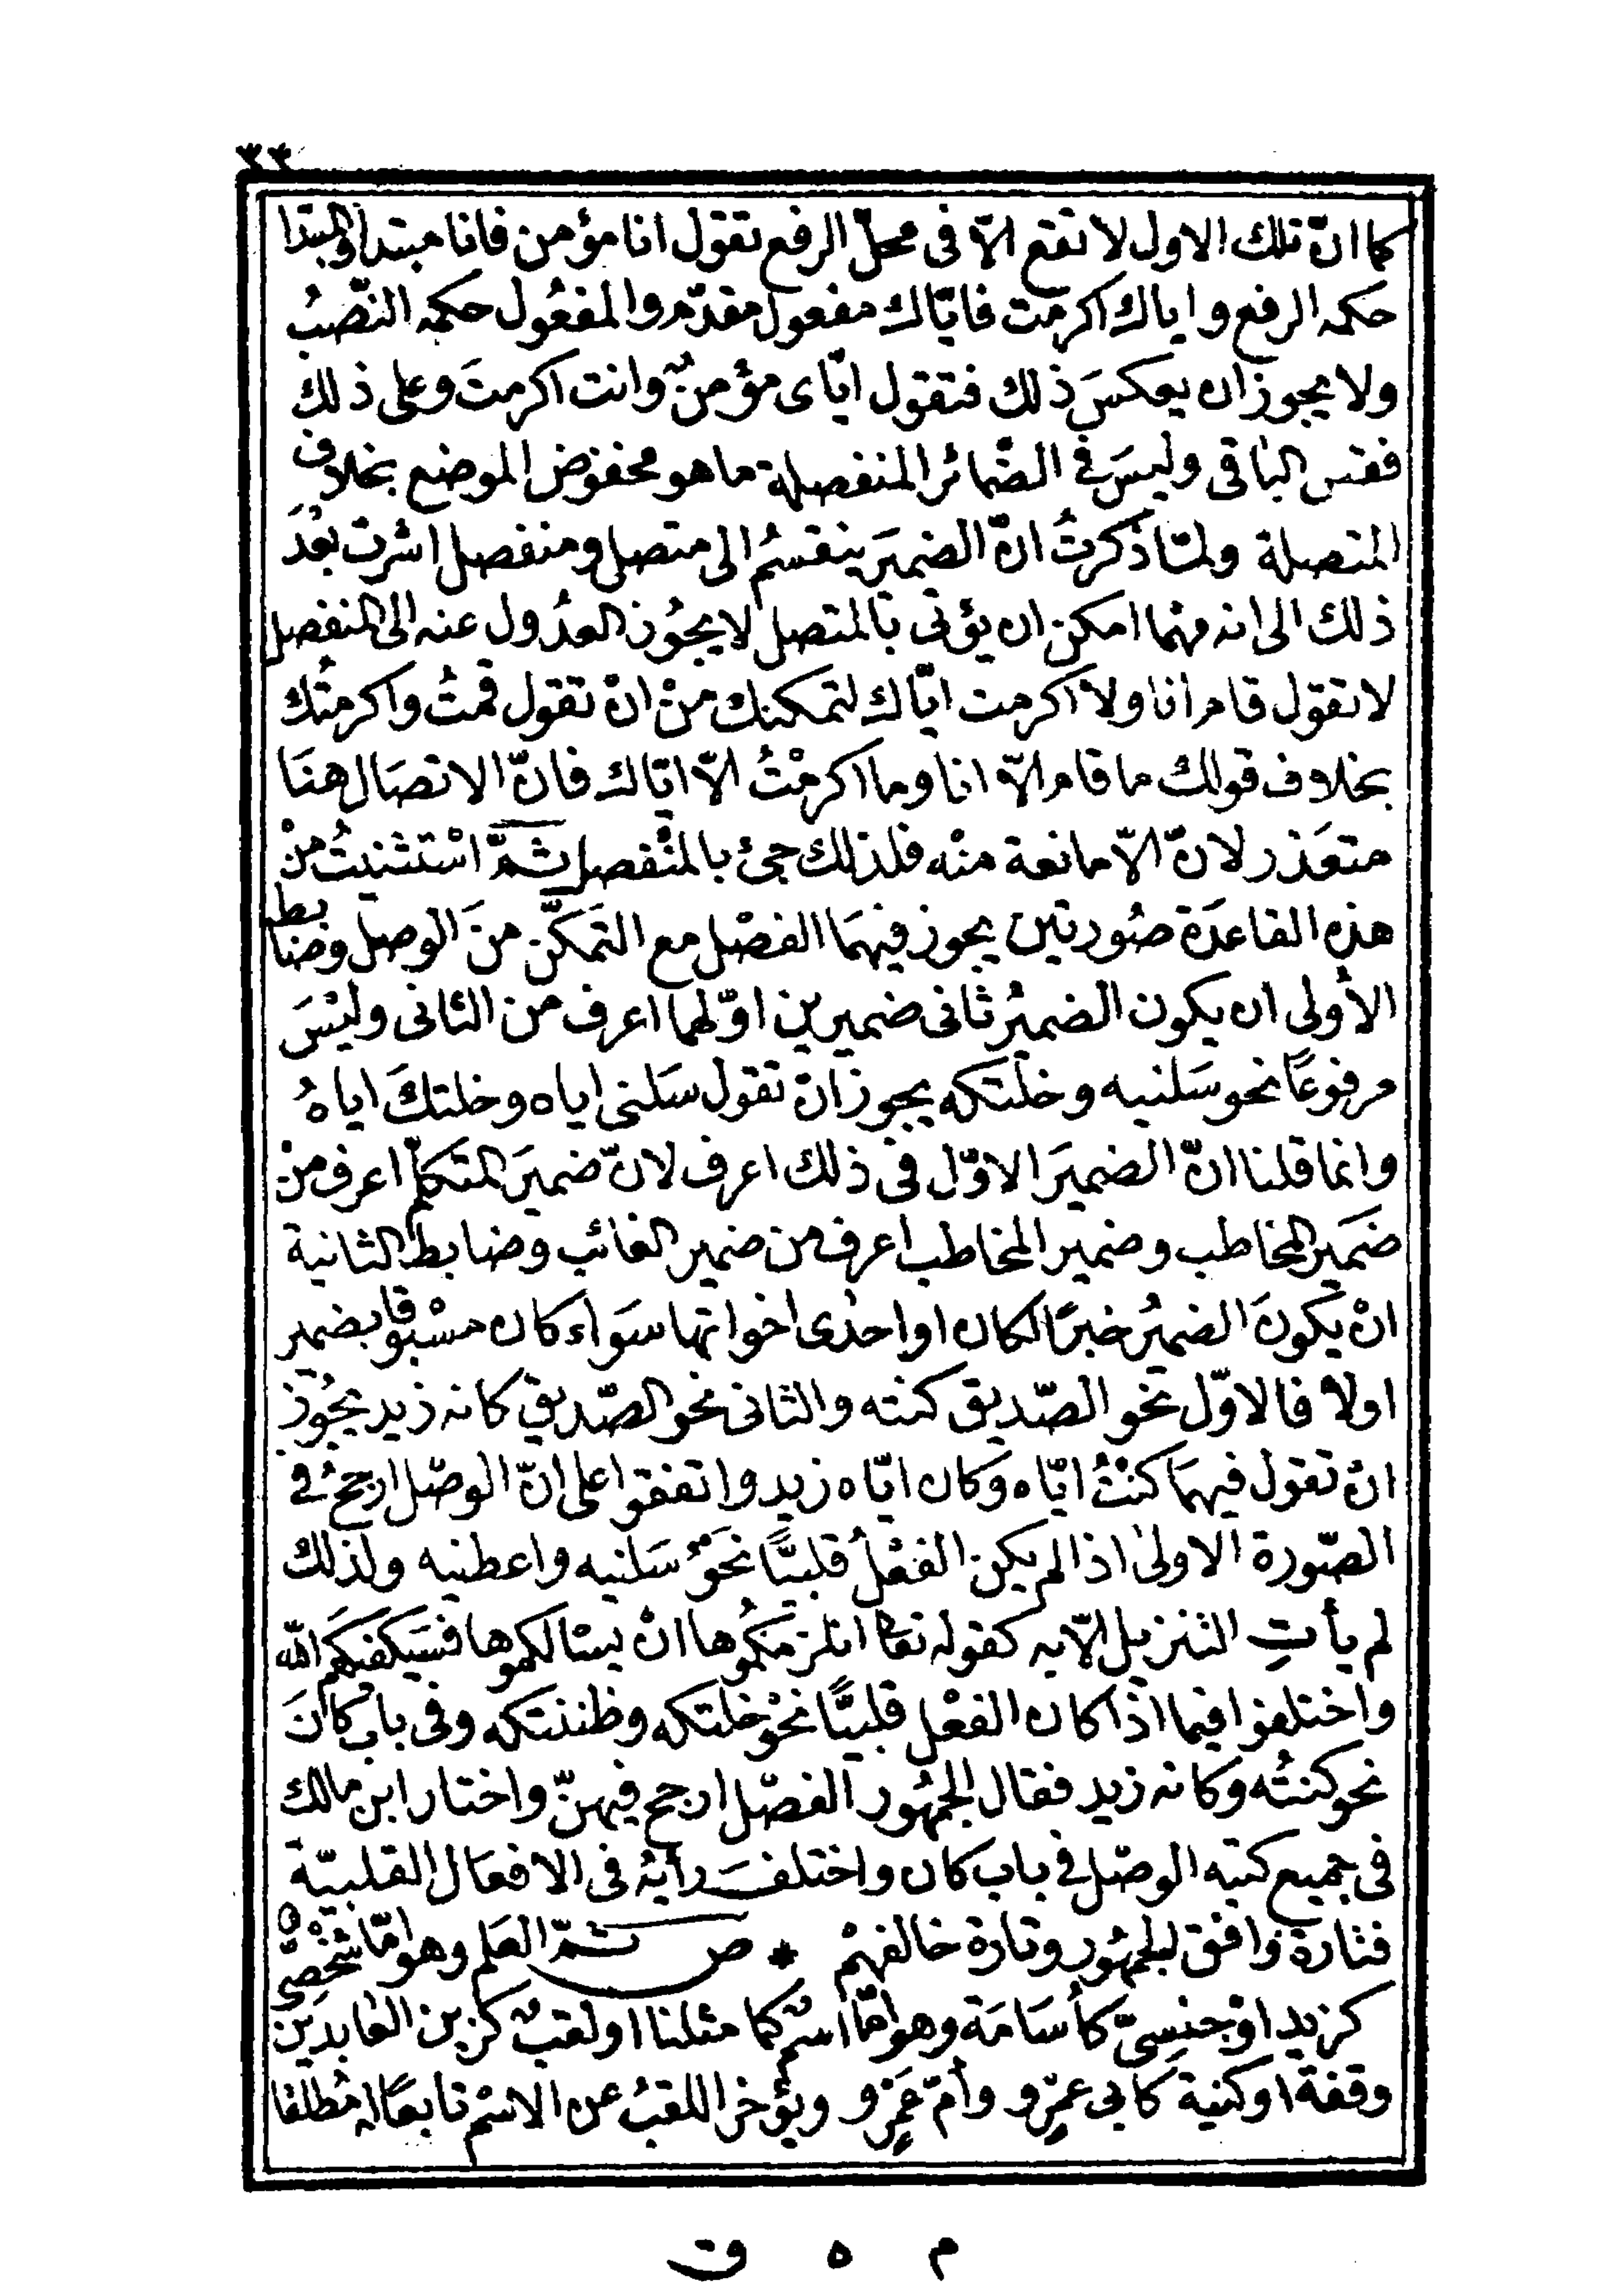 ٣٣
كما انّ تلك الاول لا تقع الّا فى محلّ الرفع تقول انا مؤمن فانا مبتدأ والمبتدا
حكمه الرفع و اياك اكرمت فايّاك مفعول مقدّم والمفعُول حكمه النّصبُ
ولا يجوز ان يعكسَ ذلك فتقول ايّاى مؤمنٌ وانت اكرمتَ وعلى ذلك
فقس الباقى وليسَ فى الضّمائر المنفصلة ما هو مخفوض الموضع بخلاف
المتصلة ولمّا ذكرتُ انّ الضميَر ينقسمُ الى متصل ومنفصل اشرت بعْدَ
ذلك الى انه مهما امكن ان يؤتى بالمتصل لا يجُوز العدُول عنه الى المنفصل
لا تقول قام انا ولا اكرمت ايّاك لتمكنك منْ انْ تقول قمتُ واكرمتُك
بخلاف قولك ما قام الّا انا وما اكرمْتُ الّا ايّاك فانّ الاتصَال هنَا
متعَذر لانّ الّا مانعة منْه فلذلك جئ بالمنْفصل ثمَّ اسْتثنيتُ منْ
هذه القاعدَة صُورتين يجوز فيهمَا الفصْل مع التمَكّن منَ الوصل وضابط
الأولى ان يكون الضميُر ثانى ضميرين اوّلهما اعرف من الثانى وليْسَ
مرفوعًا نحو سَلنيه وخلتكه يجوز انْ تقول سَلنى اياه وخلتكَ اياهُ
وانما قلنا انّ الضميَر الاوّل فى ذلك اعرف لانّ ضميَر المتكلّم اعرف منْ
ضَمير المخاطب وضمير المخاطب اعرف من ضمير الغائب وضابط الثانية
انْ يكونَ الضميُر خبرًا لكان او احدٰى اخواتها سَواء كان مسْبوقا بضمير
اولا فالاوّل نحو الصّديق كنته والثانى نحو الصّديق كانه زيد يجُوز
انْ تقول فيهمَا كنْتُ ايّاه وكان ايّاه زيد واتفقوا على انّ الوصْل ارجحُ فى
الصّورة الاولىٰ اذا لم يكن الفعْلُ قلبيًّا نحَوْ سَلنيه واعطنيه ولذلك
لم يأتِ التنزيل الّا به كقوله تعا انلزمكمُوها انْ يسْالكموها فسَيكفيكهمَ اللّه
واختلفوا فيما اذا كان الفعْل قلبيًّا نحْو خلتكه وظننتكه وفى باب كانَ
نحو كنتُه وكانه زيد فقال الجمْهُور الفصْل ارجح فيهنّ واختار ابن مالك
فى جميع كتبه الوصْل فى باب كان واختلفَ رأيهُ فى الافعَال القلبيّة
فتارة وافق الجمهُور وتارة خالفهْم * ص ثمّ العَلم وهو امّا شخْصىّ
كزيد اوْ جنسِىّ كأسَامَة وهو امّا اسْم كما مثلنا او لقبٌ كزين العٰابدَين
وقفة او كنية كابى عمْرو وأمّ عَمْرو ويؤخر اللقبُ عن الاسْم تابعًا له مُطلقا
م ه ق